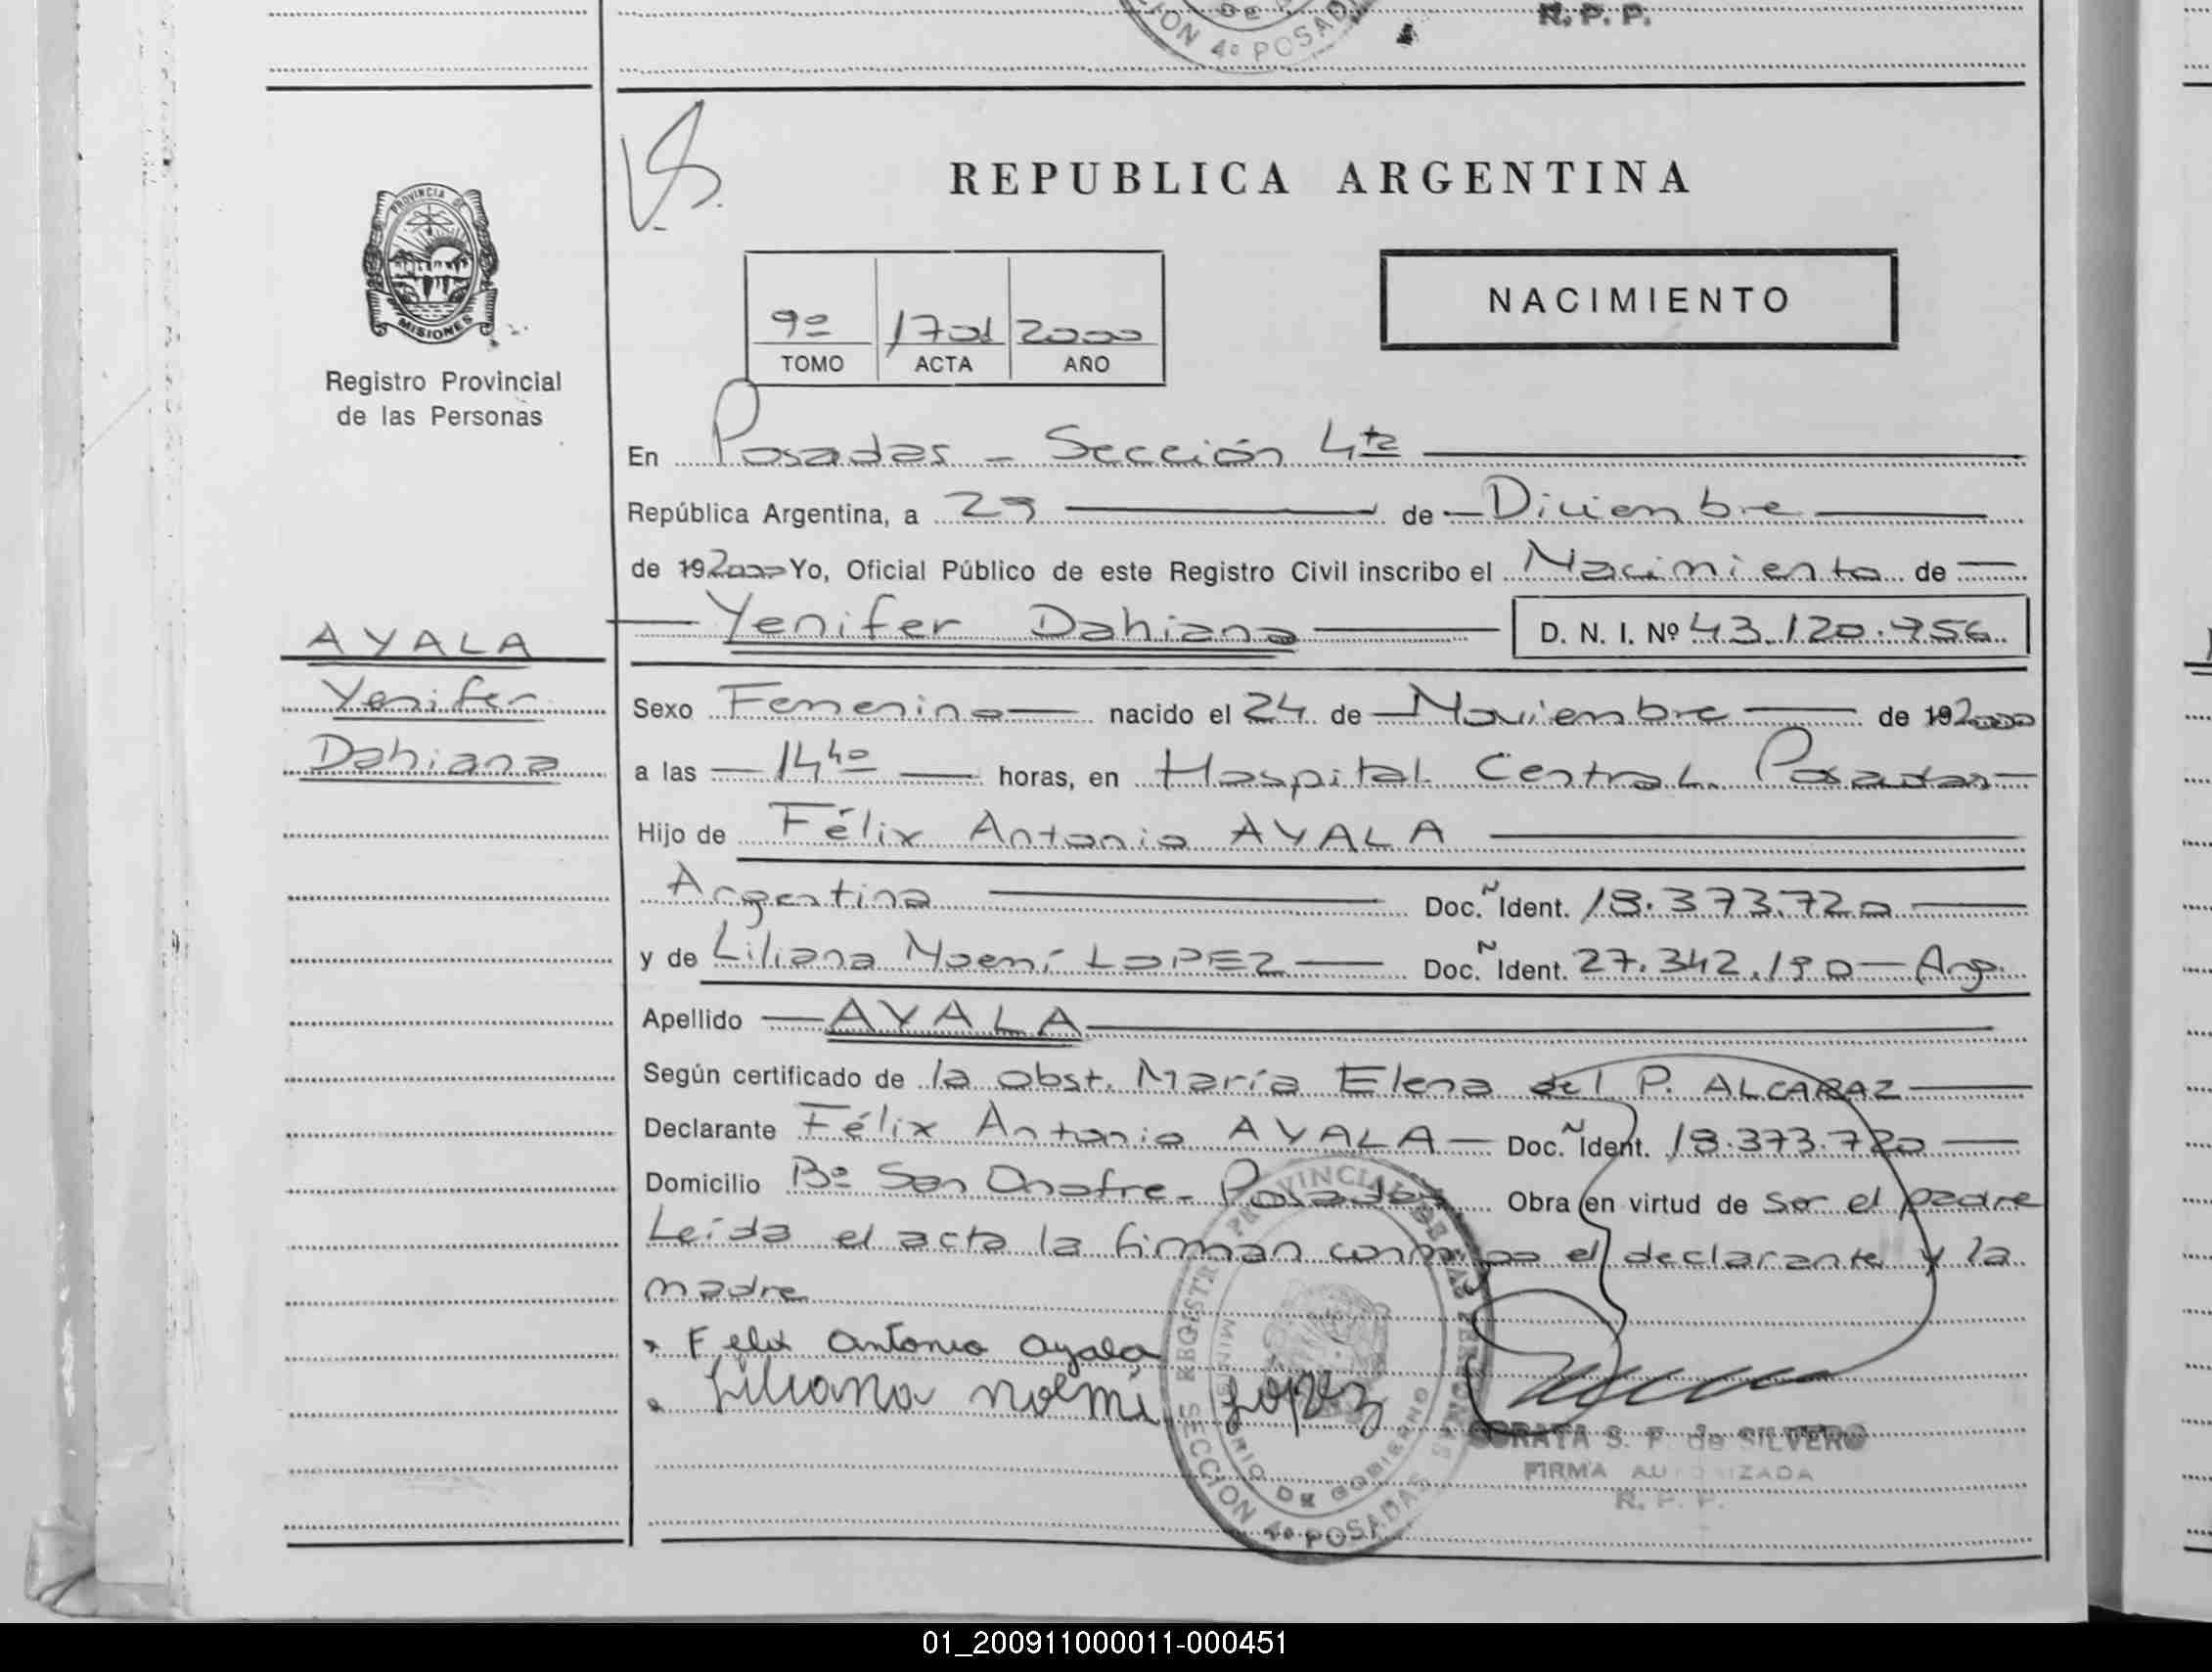 DE
CION 4º POSADA
R. P. P.
REPUBLICA ARGENTINA
PROVINCIA DE
MISIONES
9º 1701 2000
TOMO ACTA AÑO
NACIMIENTO
Registro Provincial
de las Personas
En Posadas - Sección 4ta
República Argentina, a 29 de Diciembre
de 192000 Yo, Oficial Público de este Registro Civil inscribo el Nacimiento de
Yenifer Dahiana D. N. I. Nº 43.120.756
AYALA
Yenifer
Dahiana
Sexo Femenino nacido el 24 de Noviembre de 192000
a las 14 40 horas, en Hospital Central Posadas
Hijo de Félix Antonio AYALA
Argentina Doc. Ñ Ident. 18.373.720
y de Liliana Noemí LOPEZ Doc. Ñ Ident. 27.342.190 - Arg.
Apellido AYALA
Según certificado de la obst. María Elena del P. ALCARAZ
Declarante Félix Antonio AYALA Doc. Ñ Ident. 18.373.720
Domicilio Bº San Onofre - Posadas Obra en virtud de ser el padre
Leída el acta la firman conmigo el declarante y la
madre
Felix Antonio Ayala
Liliana Noemi López
REGISTRO PROVINCIAL DE LAS PERSONAS
MINISTERIO DE GOBIERNO
SECCION 4º POSADAS
SORAYA S. F. de SILVERO
FIRMA AUTORIZADA
R. P. P.
01_200911000011-000451